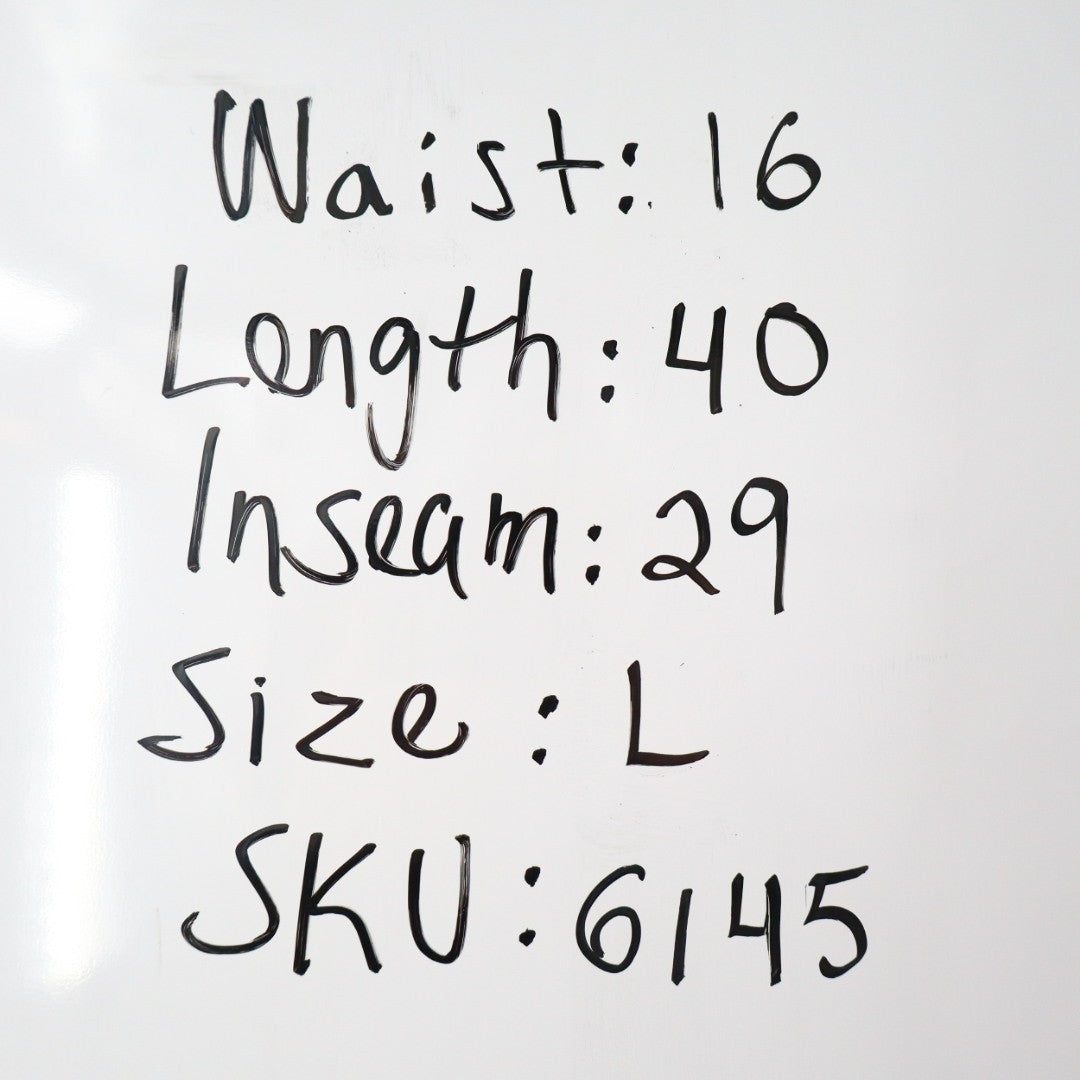 Waist: 16
Length: 40
Inseam: 29
Size: L
SKU: 6145